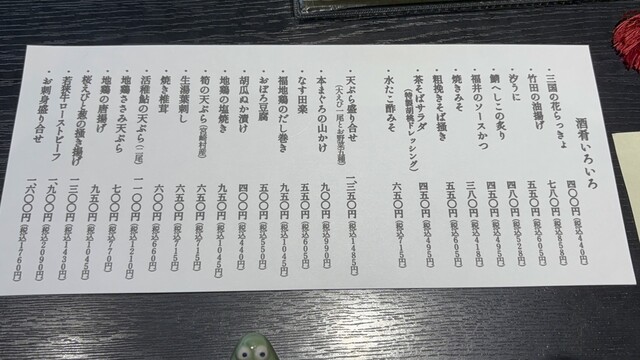 酒肴いろいろ
・三国の花らっきょ 四〇〇円(税込440円)
・竹田の油揚げ 七八〇円(税込858円)
・汐うに 五五〇円(税込605円)
・鯖へしこの炙り 四八〇円(税込528円)
・福井のソースかつ 三八〇円(税込418円)
・焼きみそ 四五〇円(税込495円)
・粗挽きそば掻き 五五〇円(税込605円)
・茶そばサラダ 四五〇円(税込495円)
(特製胡桃ドレッシング)
・水たこ酢みそ 六五〇円(税込715円)
・天ぷら盛り合せ 一、三五〇円(税込1485円)
(大えび一尾とお野菜五種)
・本まぐろの山かけ 九〇〇円(税込990円)
・なす田楽 五五〇円(税込605円)
・福地鶏のだし巻き 九五〇円(税込1045円)
・おぼろ豆腐 五〇〇円(税込550円)
・胡瓜ぬか漬け 四〇〇円(税込440円)
・地鶏の塩焼き 九五〇円(税込1045円)
・筍の天ぷら(宮崎村産) 六五〇円(税込715円)
・生湯葉刺し 六五〇円(税込715円)
・焼き椎茸 六〇〇円(税込660円)
・活稚鮎の天ぷら(二尾) 一一〇〇円(税込1210円)
・地鶏ささみ天ぷら 七〇〇円(税込770円)
・地鶏の唐揚げ 九五〇円(税込1045円)
・桜えびと葱の掻き揚げ 一三〇〇円(税込1430円)
・若狭牛ローストビーフ 一、九〇〇円(税込2090円)
・お刺身盛り合せ 一六〇〇円(税込1760円)